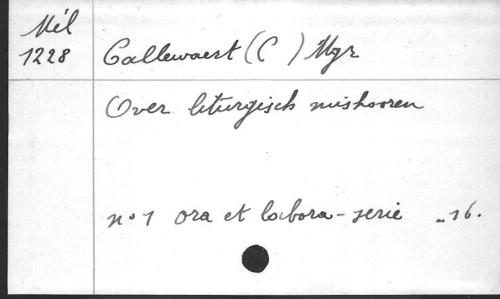 Mél
1228
Callewaert (C ) Mgr
Over liturgisch mishooren
n° 1 ora et labora-serie „16.